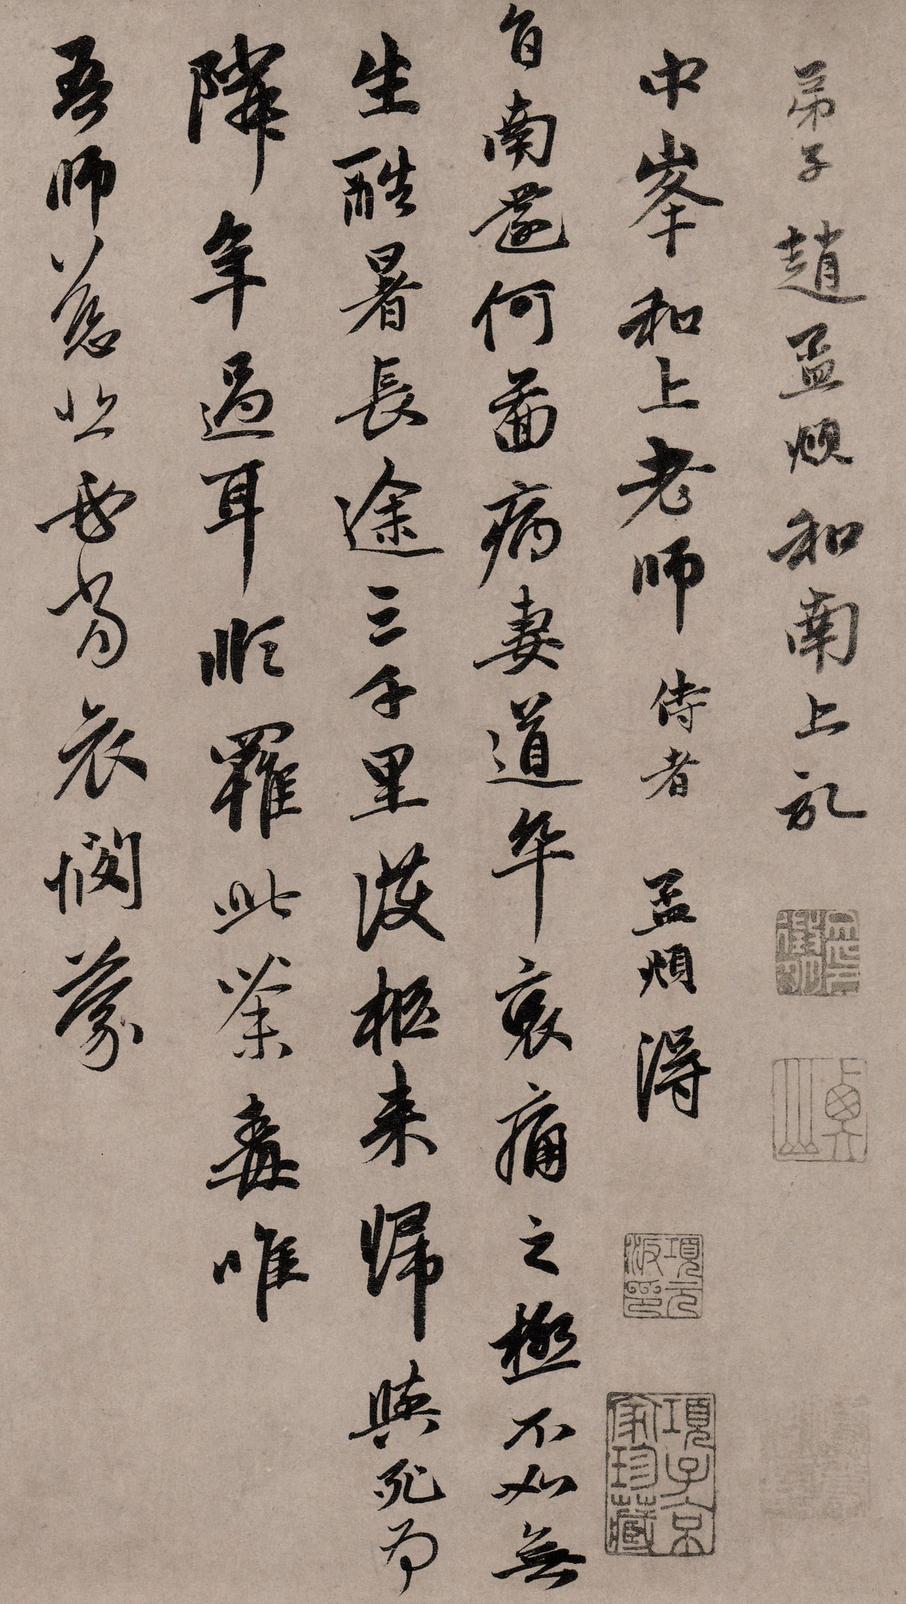 弟子趙孟頫和南上記
中峯和上老師侍者孟頫得
旨南還何啚病妻道卒哀痛之極不如無
生酷暑長途三千里護柩来歸與死為
隣年過耳順羅此荼毒唯
吾師慈悲必當哀憫蒙
項元汴印
項子京家珍藏